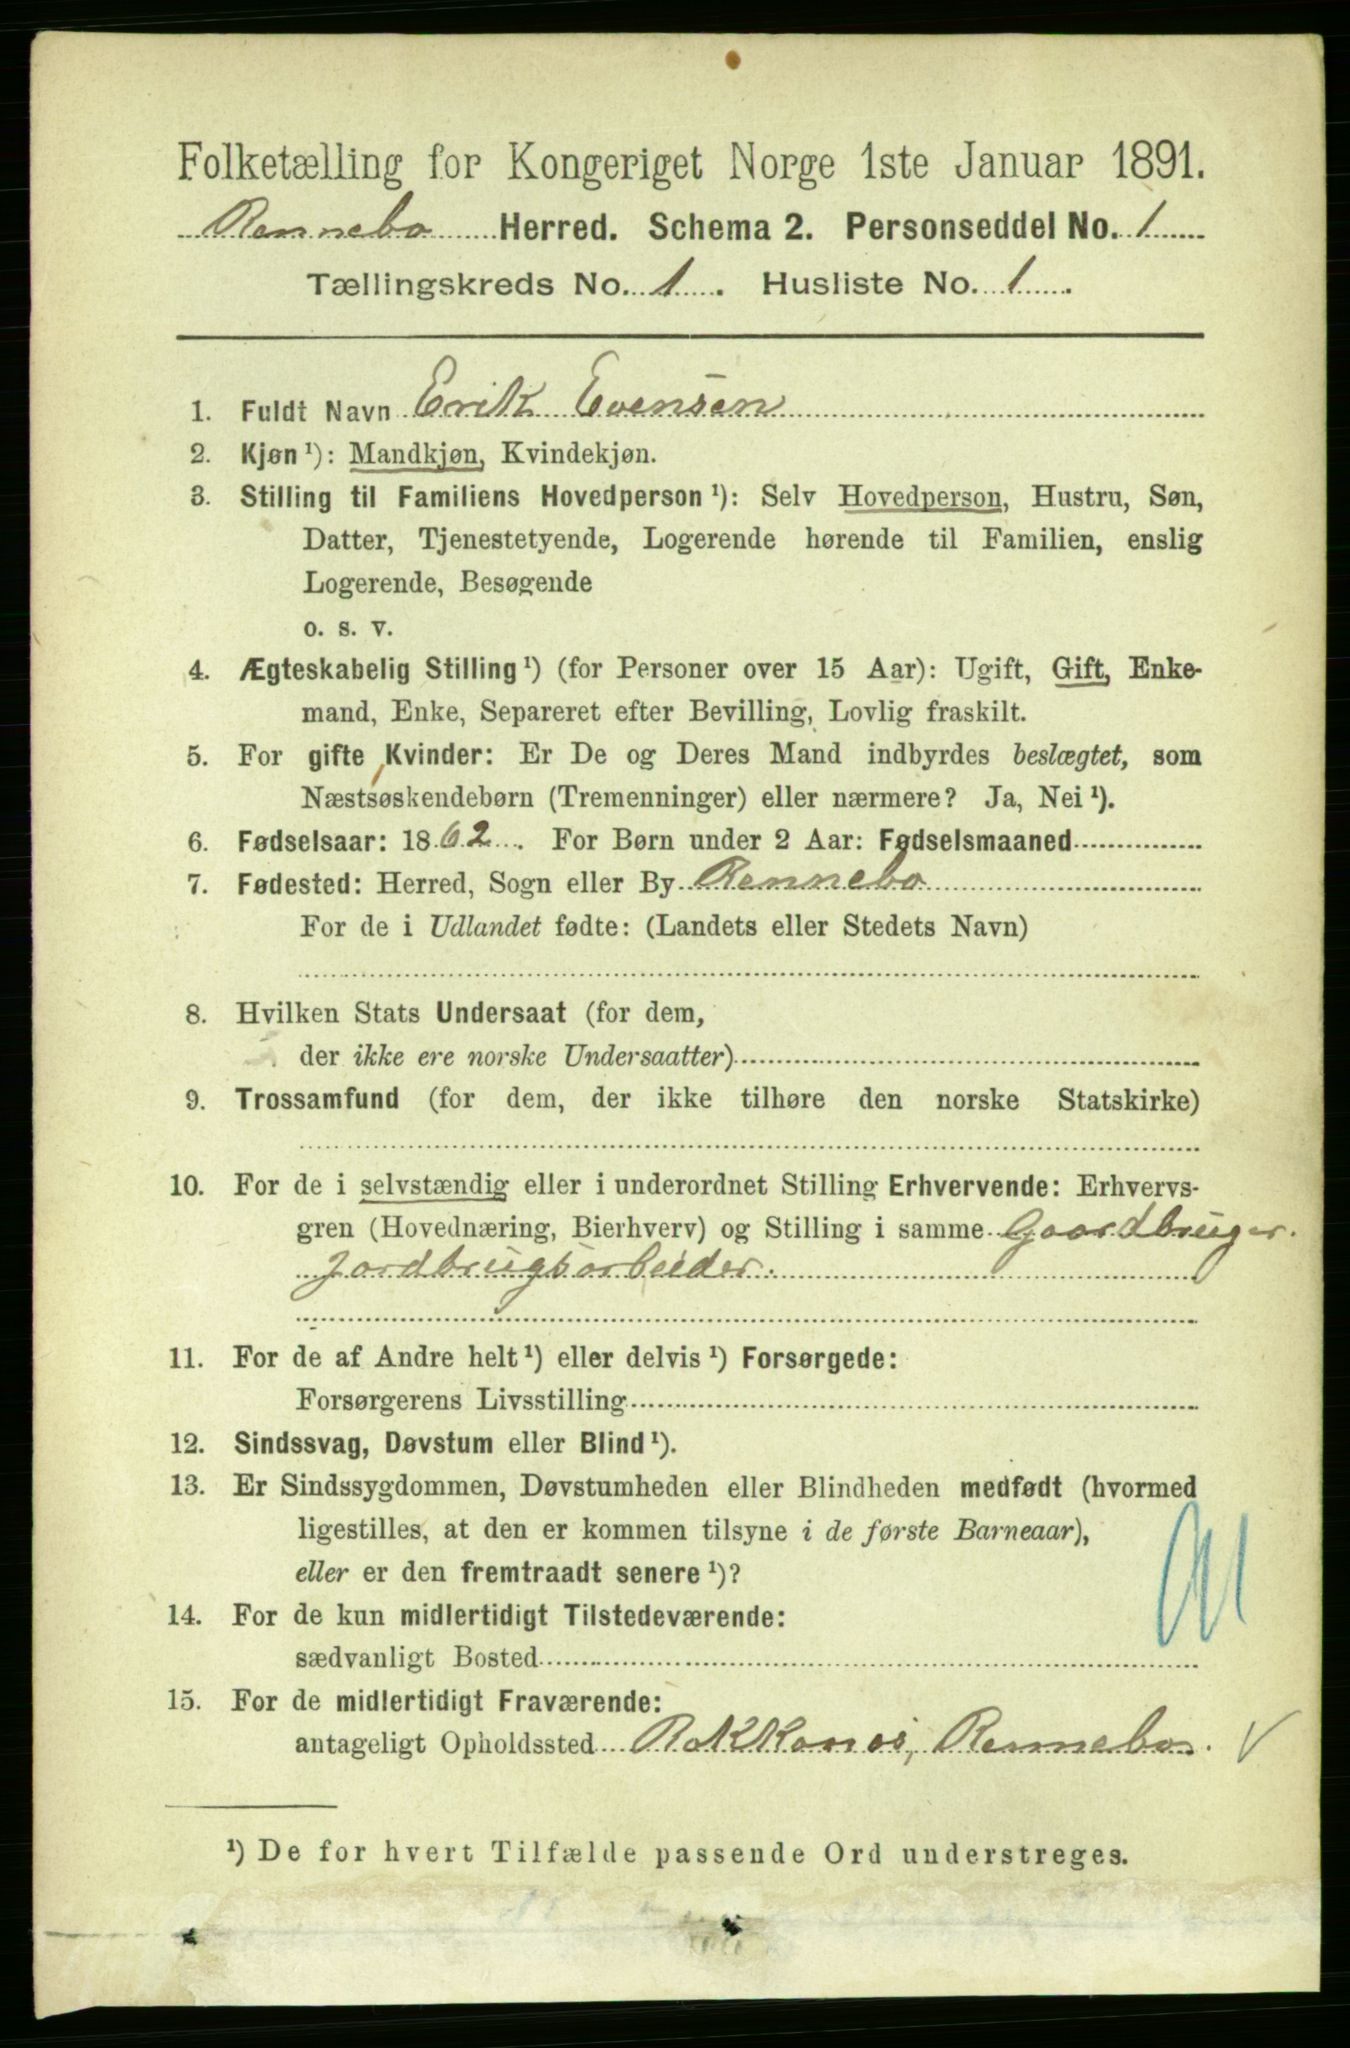 Folketælling for Kongeriget Norge 1ste Januar 1891.
Rennebo Herred. Schema 2. Personseddel No. 1
Tællingskreds No. 1. Husliste No. 1.
1. Fuldt Navn Erik Evensen
2. Kjøn ¹): Mandkjøn, Kvindekjøn.
3. Stilling til Familiens Hovedperson ¹): Selv Hovedperson, Hustru, Søn,
Datter, Tjenestetyende, Logerende hørende til Familien, enslig
Logerende, Besøgende
o. s. v.
4. Ægteskabelig Stilling ¹) (for Personer over 15 Aar): Ugift, Gift, Enke-
mand, Enke, Separeret efter Bevilling, Lovlig fraskilt.
5. For gifte Kvinder: Er De og Deres Mand indbyrdes beslægtet, som
Næstsøskendebørn (Tremenninger) eller nærmere? Ja, Nei ¹).
6. Fødselsaar: 1862. For Børn under 2 Aar: Fødselsmaaned
7. Fødested: Herred, Sogn eller By Rennebo
For de i Udlandet fødte: (Landets eller Stedets Navn)
8. Hvilken Stats Undersaat (for dem,
der ikke ere norske Undersaatter)
9. Trossamfund (for dem, der ikke tilhøre den norske Statskirke)
10. For de i selvstændig eller i underordnet Stilling Erhvervende: Erhvervs-
gren (Hovednæring, Bierhverv) og Stilling i samme Gaardbruger.
Jordbrugsarbeider.
11. For de af Andre helt ¹) eller delvis ¹) Forsørgede:
Forsørgerens Livsstilling
12. Sindssvag, Døvstum eller Blind ¹).
13. Er Sindssygdommen, Døvstumheden eller Blindheden medfødt (hvormed
ligestilles, at den er kommen tilsyne i de første Barneaar),
eller er den fremtraadt senere ¹)?
14. For de kun midlertidigt Tilstedeværende:
sædvanligt Bosted
15. For de midlertidigt Fraværende:
antageligt Opholdssted Rennebo. V
¹) De for hvert Tilfælde passende Ord understreges.